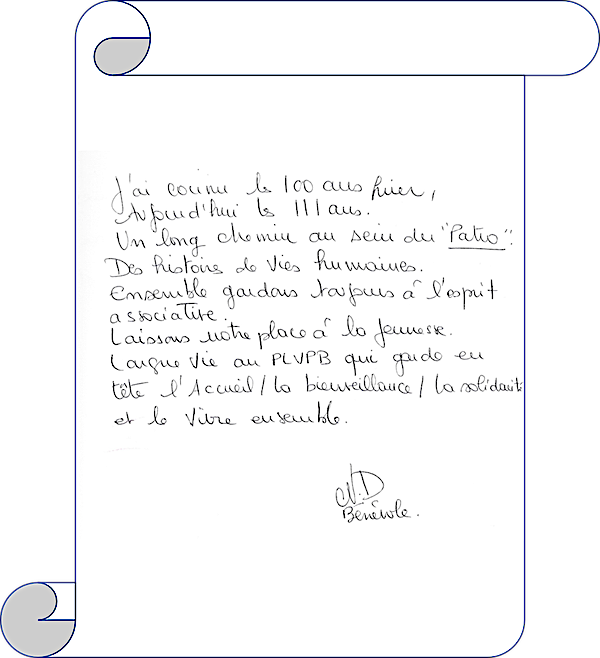 J'ai connu les 100 ans hier,
Aujourd'hui les 111 ans.
Un long chemin au sein du "Patro".
Des histoires de vies humaines.
Ensemble gardons toujours à l'esprit
associative.
Laissons notre place à la jeunesse.
Longue vie au PLVPB qui garde en
tête l'Accueil / la bienveillance / la solidarité
et le vivre ensemble.
N.D
Bénévole.